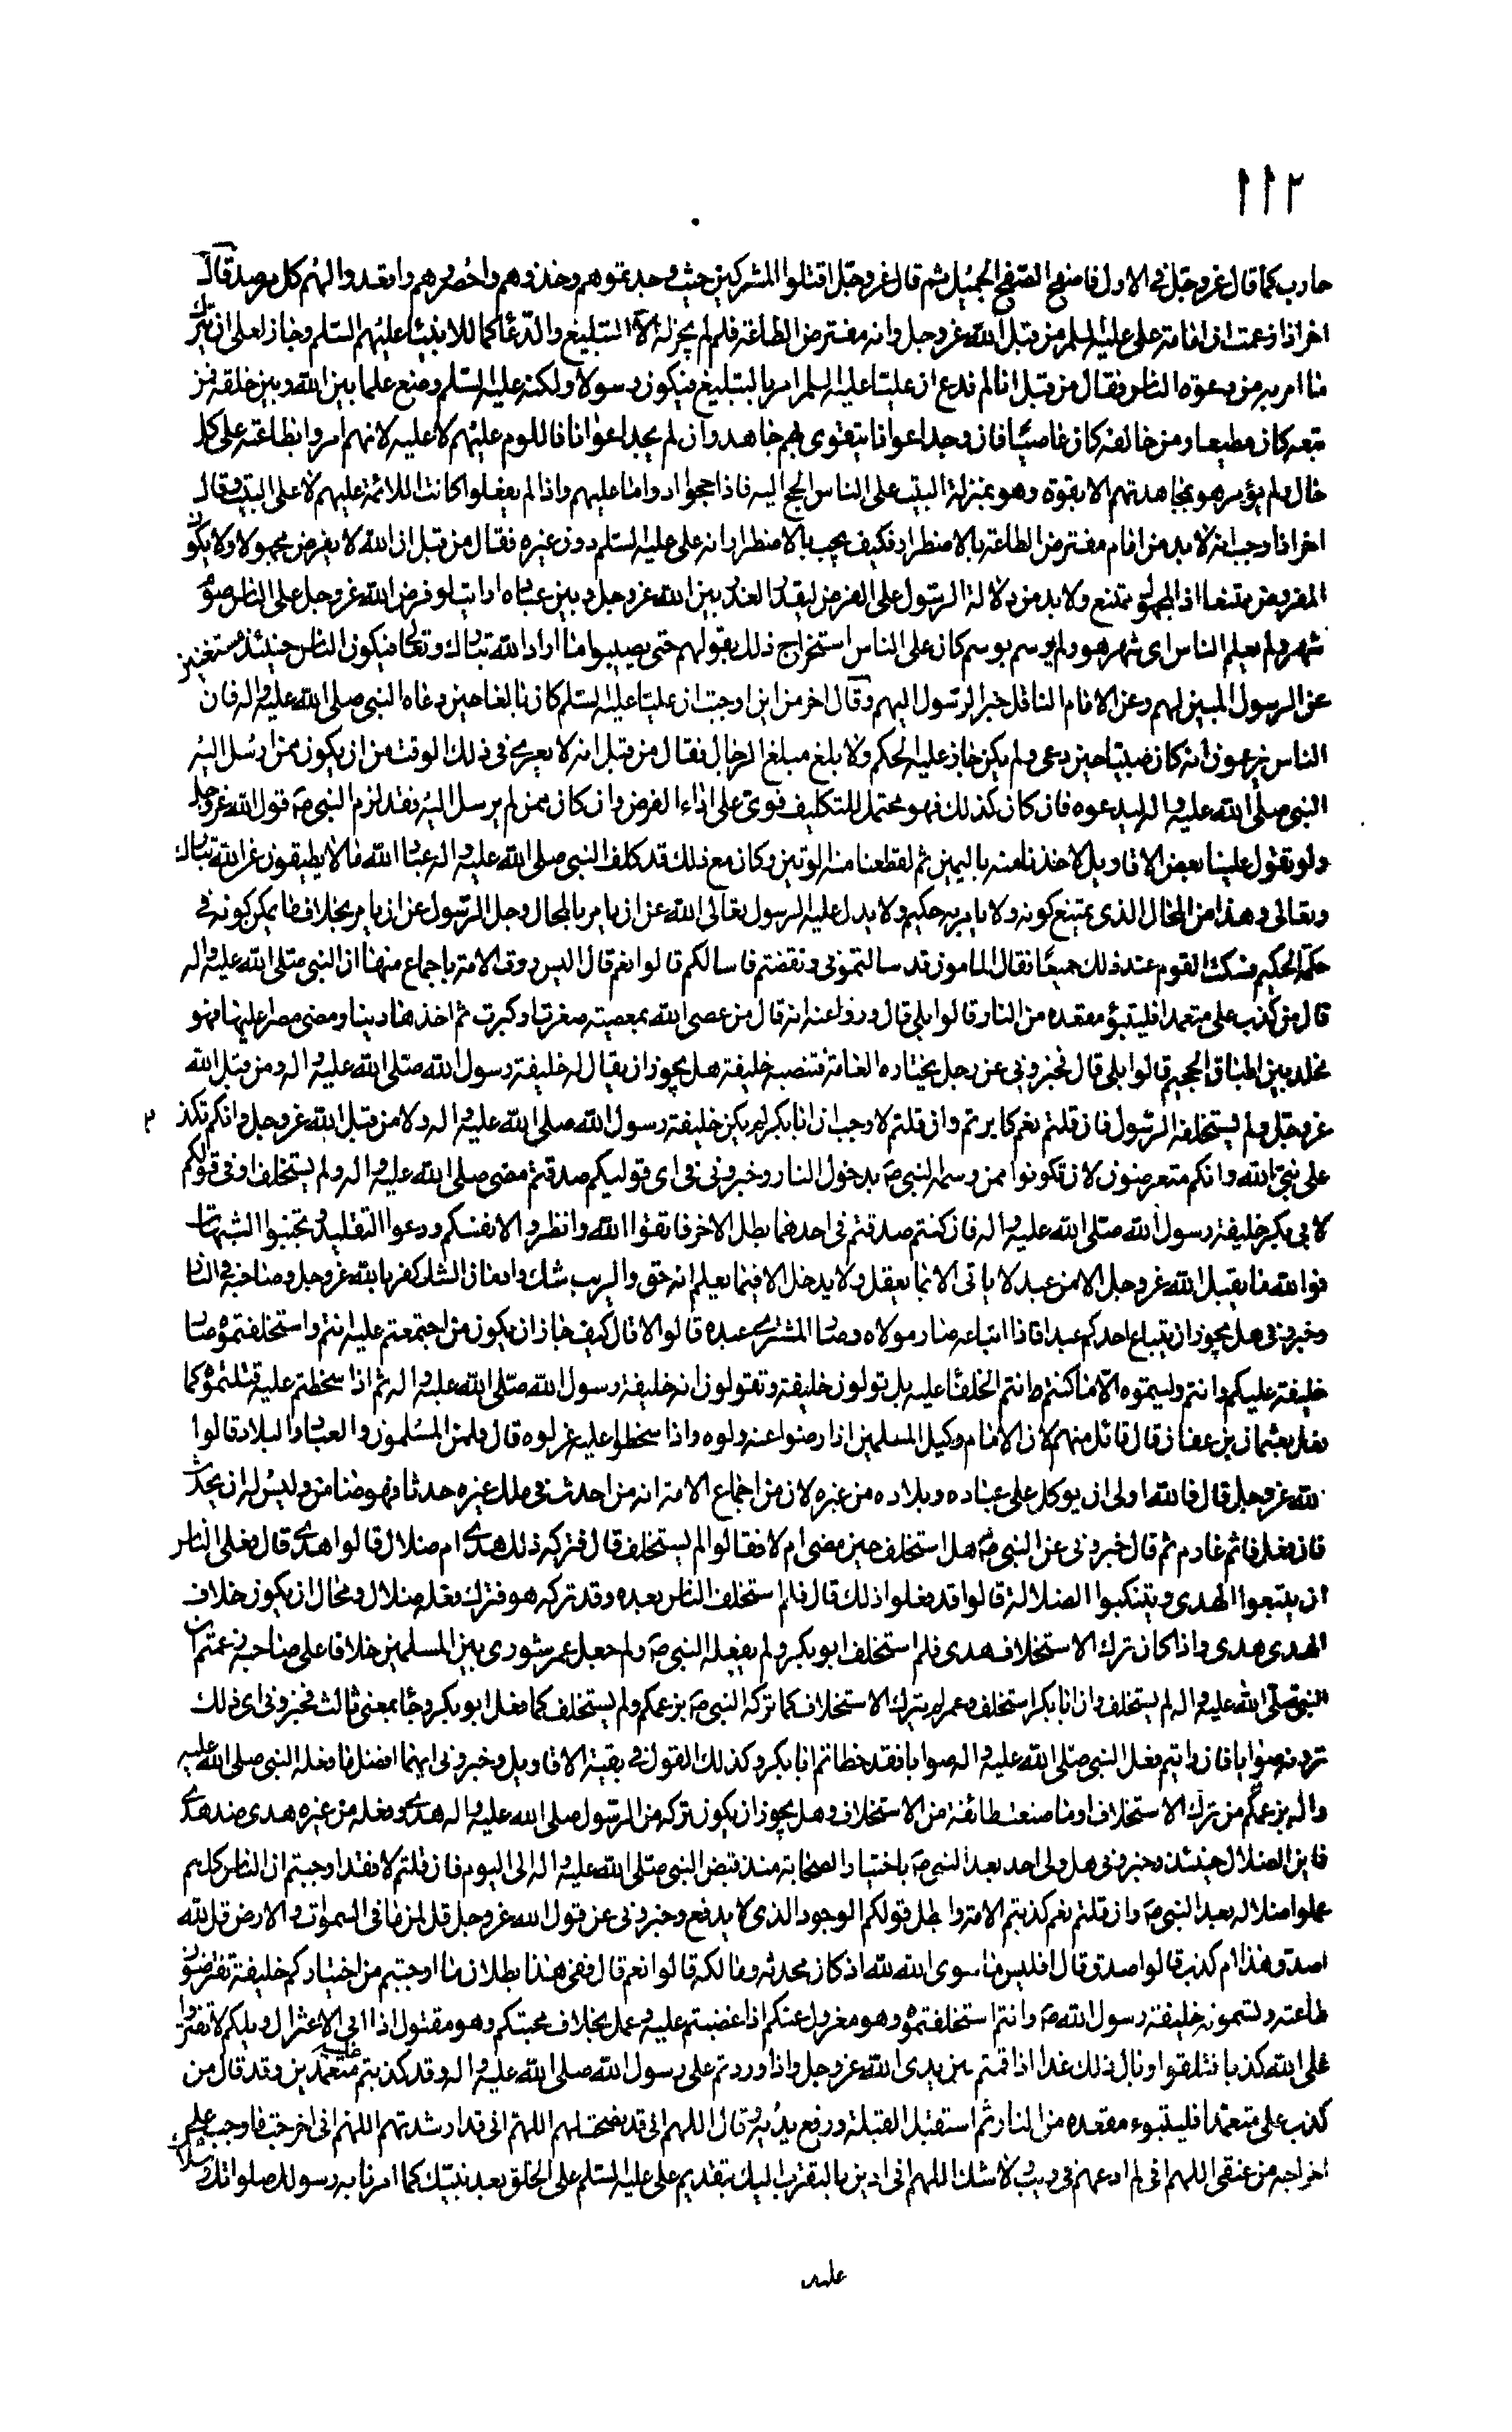 ١١٢
حارب كما قال عز وجل فى الاول فاصفح الصفح الجميل ثم قال عز وجل اقتلوا المشركين حيث وجدتموهم وخذوهم واحصروهم واقعدوا لهم كل مرصد قال
اخر اذا زعمت ان امامة على عليه السلم من قبل الله عز وجل وانه مفترض الطاعة فلم لم يجز له الا التبليغ والدعا كما للانبيا عليهم السلم وجاز لعلى ان يترك
ما امر به من دعوة الناس فقال من قبل انا لم ندع ان عليا عليه السلم امر بالتبليغ فيكون رسولا ولكنه عليه السلم وضع علما بين الله وبين خلقه فمن
تبعه كان مطيعا ومن خالفه كان عاصيا فان وجد اعوانا يتقوى بهم جاهد وان لم يجد اعوانا فاللوم عليهم لا عليه لانهم امروا بطاعته على كل
حال ولم يؤمر هو بمجاهدتهم الا بقوة وهو بمنزلة البيت على الناس الحج اليه فاذا حجوا ادوا ما عليهم واذا لم يفعلوا كانت اللائمة عليهم لا على البيت وقال
اخر اذا وجب انه لا بد من امام مفترض الطاعة بالاضطرار فكيف يجب بالاضطرار انه على عليه السلم دون غيره فقال من قبل ان الله لا يفرض مجهولا ولا يكون
المفروض ممتنعا اذ المجهول ممتنع ولا بد من دلالة الرسول على الفرض ليقطع العذر بين الله عز وجل وبين عباده ارايت لو فرض الله عز وجل على الناس صوم
شهر ولم يعلم الناس اى شهر هو ولم يوسم بوسم كان على الناس استخراج ذلك بعقولهم حتى يصيبوا ما اراد الله تبارك وتعالى فيكون الناس حينئذ مستغنين
عن الرسول المبين لهم وعن الامام الناقل خبر الرسول اليهم وقال اخر من اين اوجبت ان عليا عليه السلم كان بالغا حين دعاه النبى صلى الله عليه واله فان
الناس يزعمون انه كان صبيا حين دعى ولم يكن جاز عليه الحكم ولا بلغ مبلغ الرجال فقال من قبل انه لا يعرى فى ذلك الوقت من ان يكون ممن ارسل اليه
النبى صلى الله عليه واله ليدعوه فان كان كذلك فهو محتمل للتكليف قوى على اداء الفرض وان كان ممن لم يرسل اليه فقد لزم النبى ص قول الله عز وجل
ولو تقول علينا بعض الاقاويل لاخذنا منه باليمين ثم لقطعنا منه الوتين وكان مع ذلك قد كلف النبى صلى الله عليه واله عباد الله ما لا يطيقون عن الله تبارك
وتعالى وهذا من المحال الذى يمتنع كونه ولا يامر به حكيم ولا يدل عليه الرسول تعالى الله عن ان يامر بالمحال وجل الرسول عن ان يامر بخلاف ما يمكن كونه فى
حكمة الحكيم فسكت القوم عند ذلك جميعا فقال المامون قد سالتمونى ونقضتم فاسالكم قالوا نعم قال اليس روت الامة باجماع منها ان النبى صلى الله عليه واله
قال من كذب على متعمدا فليتبؤ مقعده من النار قالوا بلى قال ورووا عنه انه قال من عصى الله بمعصية صغرت او كبرت ثم اخذها دينا ومضى مصرا عليها فهو
مخلد بين اطباق الجحيم قالوا بلى قال فخبرونى عن رجل يختاره العامة فتنصبه خليفة هل يجوز ان يقال له خليفة رسول الله صلى الله عليه واله ومن قبل الله
عز وجل ولم يستخلفه الرسول فان قلتم نعم كابرتم وان قلتم لا وجب ان ابا بكر لم يكن خليفة رسول الله صلى الله عليه واله ولا من قبل الله عز وجل وانكم تكذبون
على نبى الله وانكم متعرضون لان تكونوا ممن وسمه النبى ص بدخول النار وخبرونى فى اى قوليكم صدقتم مضى صلى الله عليه واله ولم يستخلف او فى قولكم
لابى بكر خليفة رسول الله صلى الله عليه واله فان كنتم صدقتم فى احدهما بطل الاخر فاتقوا الله وانظروا لانفسكم ودعوا التقليد وتجنبوا الشبهات
فوالله ما يقبل الله عز وجل الا من عبد لا ياتى الا بما يعقل ولا يدخل الا فيما يعلم انه حق والريب شك وادمان الشك كفر بالله عز وجل وصاحبه فى النار
وخبرونى هل يجوز ان يبتاع احدكم عبدا فاذا ابتاعه صار مولاه وصار المشترى عبده قالوا لا قال كيف جاز ان يكون من اجتمعتم عليه انتم واستخلفتموه صار
خليفة عليكم وانتم وليتموه الا ما كنتم انتم الخلفا عليه بل تولون خليفة وتقولون انه خليفة رسول الله صلى الله عليه واله ثم اذا سخطتم عليه قتلتموه كما
فعل بعثمان بن عفان قال قائل منهم لان الامام وكيل المسلمين اذا رضوا عنه ولوه واذا سخطوا عليه عزلوه قال فلمن المسلمون والعباد والبلاد قالوا
لله عز وجل قال فالله اولى ان يوكل على عباده وبلاده من غيره لان من اجماع الامة انه من احدث فى ملك غيره حدثا فهو ضامن وليس له ان يحدث
فان فعل فاثم غارم ثم قال خبرونى عن النبى ص هل استخلف حين مضى ام لا فقالوا لم يستخلف قال فتركه ذلك هدى ام ضلال قالوا هدى قال فعلى الناس
ان يتبعوا الهدى ويتنكبوا الضلالة قالوا قد فعلوا ذلك قال فلم استخلف الناس بعده وقد تركه هو فترك فعله ضلال ومحال ان يكون خلاف
الهدى هدى واذا كان ترك الاستخلاف هدى فلم استخلف ابو بكر ولم يفعله النبى ص ولم جعل عمر شورى بين المسلمين خلافا على صاحبه زعمتم ان
النبى صلى الله عليه واله لم يستخلف وان ابا بكر استخلف وعمر لم يترك الاستخلاف كما تركه النبى ص بزعمكم ولم يستخلف كما فعل ابو بكر وجا بمعنى ثالث فخبرونى اى ذلك
ترونه صوابا فان رايتم فعل النبى صلى الله عليه واله صوابا فقد خطاتم ابا بكر وكذلك القول فى بقية الاقاويل وخبرونى ايهما افضل ما فعله النبى صلى الله عليه
واله بزعمكم من ترك الاستخلاف او ما صنعت طائفة من الاستخلاف وهل يجوز ان يكون تركه من الرسول صلى الله عليه واله هدى وفعله من غيره هدى ضد هدى
فاين الضلال حينئذ وخبرونى هل ولى احد بعد النبى ص باختيار الصحابة منذ قبض النبى صلى الله عليه واله الى اليوم فان قلتم لا فقد اوجبتم ان الناس كلهم
عملوا ضلالة بعد النبى ص وان قلتم نعم كذبتم الامة وابطل قولكم الوجود الذى لا يدفع وخبرونى عن قول الله عز وجل قل لمن ما فى السموات والارض قل لله
اصدق هذا ام كذب قالوا صدق قال افليس ما سوى الله لله اذ كان محدثه ومالكه قالوا نعم قال ففى هذا بطلان ما اوجبتم من اختياركم خليفة تفترضون
طاعته وتسمونه خليفة رسول الله ص وانتم استخلفتموه وهو معزول عنكم اذا غضبتم عليه وعمل بخلاف محبتكم وهو مقتول اذا ابى الاعتزال ويلكم لا تفتروا
على الله كذبا فتلقوا وبال ذلك غدا اذا قمتم بين يدى الله عز وجل واذا وردتم على رسول الله صلى الله عليه واله وقد كذبتم عليه متعمدين وقد قال من
كذب على متعمدا فليتبوء مقعده من النار ثم استقبل القبلة ورفع يديه وقال اللهم انى قد نصحت لهم اللهم انى قد ارشدتهم اللهم انى اخرجت ما وجب على
اخراجه من عنقى اللهم انى لم ادعهم فى ريب ولا شك اللهم انى ادين بالتقرب اليك بتقديم على عليه السلم على الخلق بعد نبيك كما امرنا به رسولك صلواتك
عليه